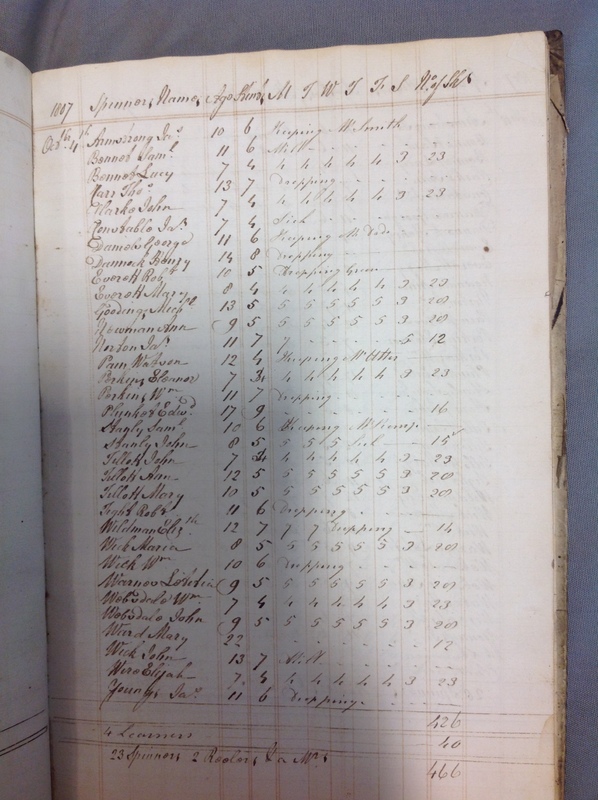 1807 Spinners Names Age M T W T F S No of Sks
Octr 4th Armstrong Jas 10 6 Keeping W Smith
Bonner Saml 11 6 Mill
Bonner Lucy 7 4 4 4 4 4 4 3 23
Carr Thos 13 7 Dropping
Clarke John 7 4 4 4 4 4 4 3 23
Constable Jas 7 4 Sick
Damer George 11 6 Keeping
Dannock Henry 14 8 Dropping
Everett Robt 10 5 Dropping
Everett Mary 8 4 4 4 4 4 4 3 23
Gooding 13 5 5 5 5 5 5 3 28
Newman Ann 9 5 5 5 5 5 5 3 28
Norton Jas 11 7 7 5 12
Pain Watson 12 4 Keeping
Perkins Eleanor 7 4 4 4 4 4 3 23
Perkins Wm 11 7 Dropping
Edwd 17 9 16
Saml 10 6 Keeping W Kemp
Stanly John 8 5 5 5 5 Sick 15
Tillott John 7 4 4 4 4 4 3 23
Tillott Ann 12 5 5 5 5 5 5 3 28
Tillott Mary 10 5 5 5 5 5 5 3 28
Robt 11 6 Dropping
Wildman Elizth 12 7 7 7 Dropping 14
Wick Maria 8 5 5 5 5 5 5 3 28
Wick Wm 10 6 Dropping
Warner 9 5 5 5 5 5 5 3 28
Websdale Wm 7 4 4 4 4 4 4 3 23
Websdale John 9 5 5 5 5 5 5 3 28
Ward Mary 22 12
Wick John 13 7 Mill
Elijah 7 4 4 4 4 4 4 3 23
Youngs Jas 11 6 Dropping
426
4 Learners 40
23 Spinners 2 Reelers 466